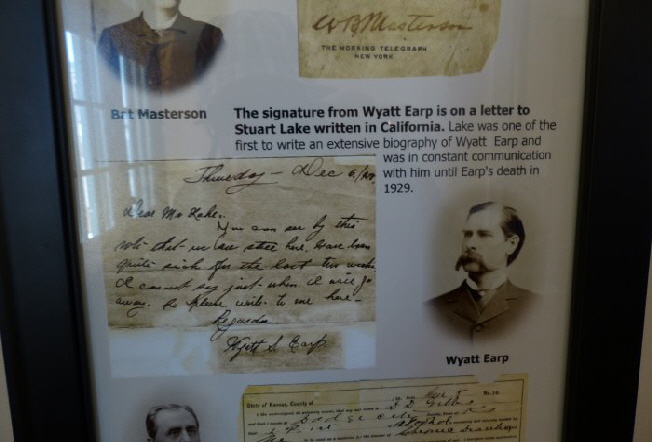 W B Masterson
THE MORNING TELEGRAPH
NEW YORK
Bat Masterson
The signature from Wyatt Earp is on a letter to
Stuart Lake written in California. Lake was one of the
first to write an extensive biography of Wyatt Earp and
was in constant communication
with him until Earp's death in
1929.
Thursday - Dec 6/28
Dear Mr Lake.
You can see by this
note that we are still here, have been
quite sick for the last two weeks
I cannot say just when I will go
away. So please write to me here -
Regards
Wyatt S. Earp
Wyatt Earp
State of Kansas, County of
No.
Dodge City